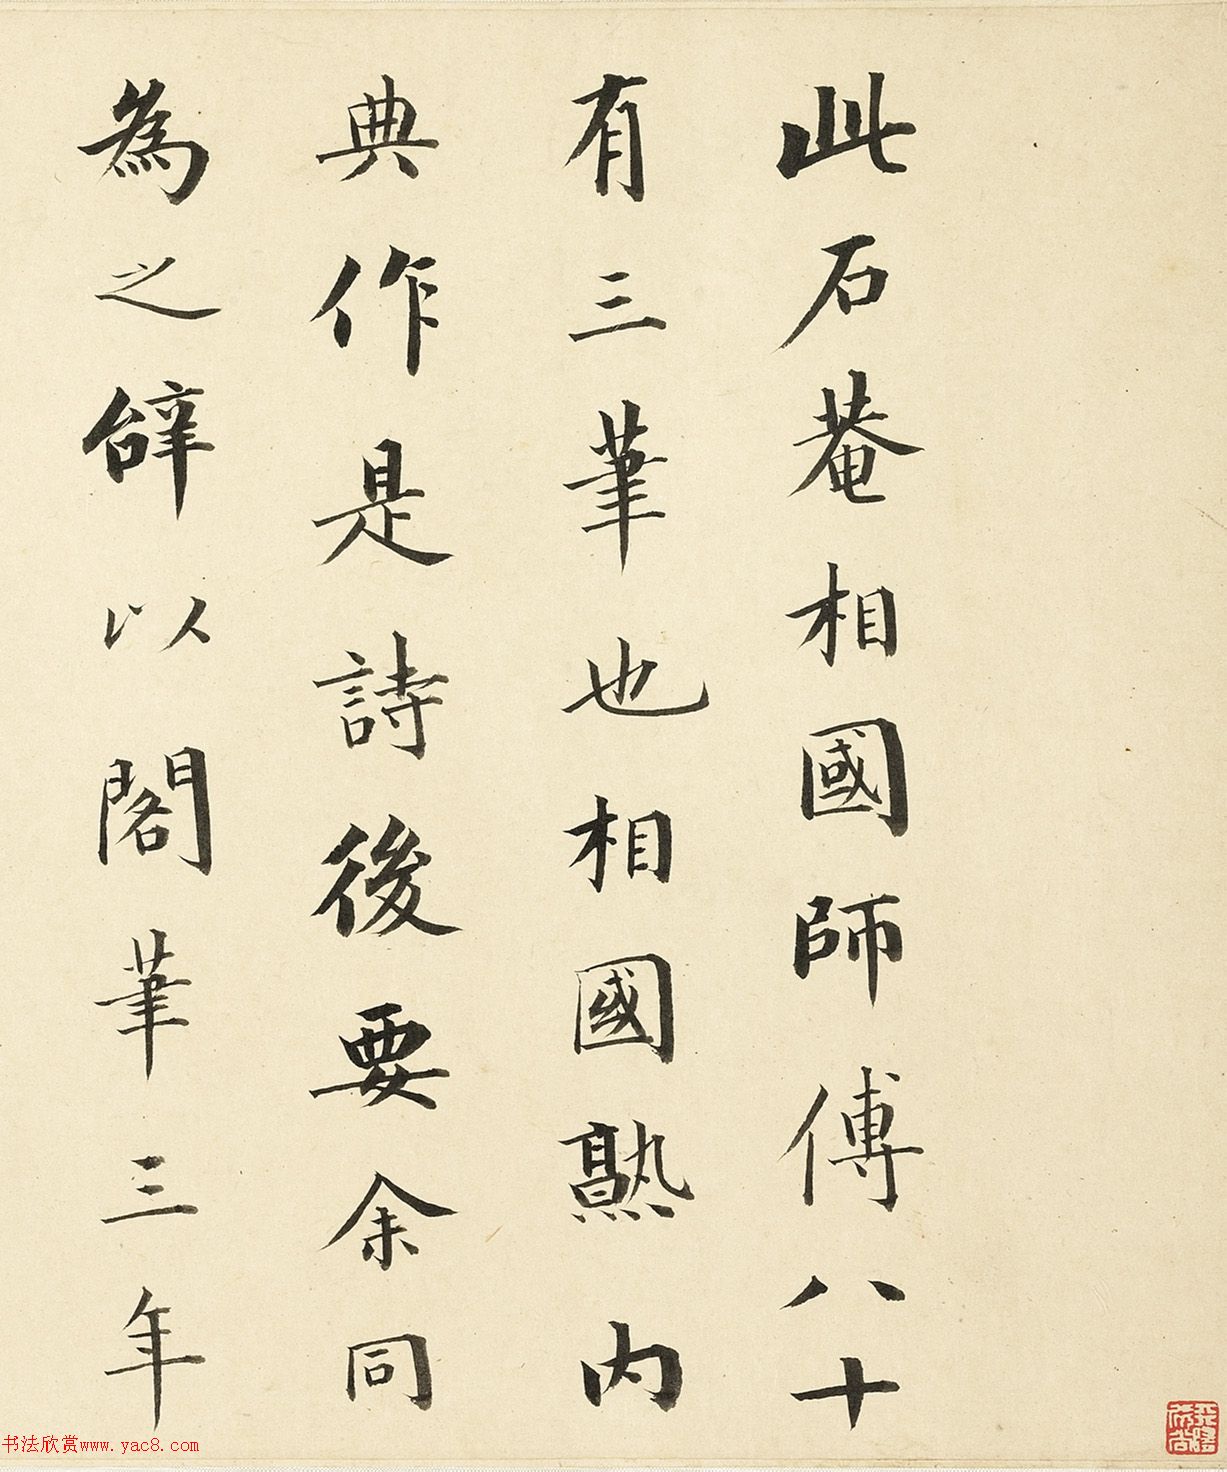 此石菴相國師傅八十
有三筆也相國熟内
典作是詩後要余同
為之辤以閣筆三年
书法欣赏www.yac8.com